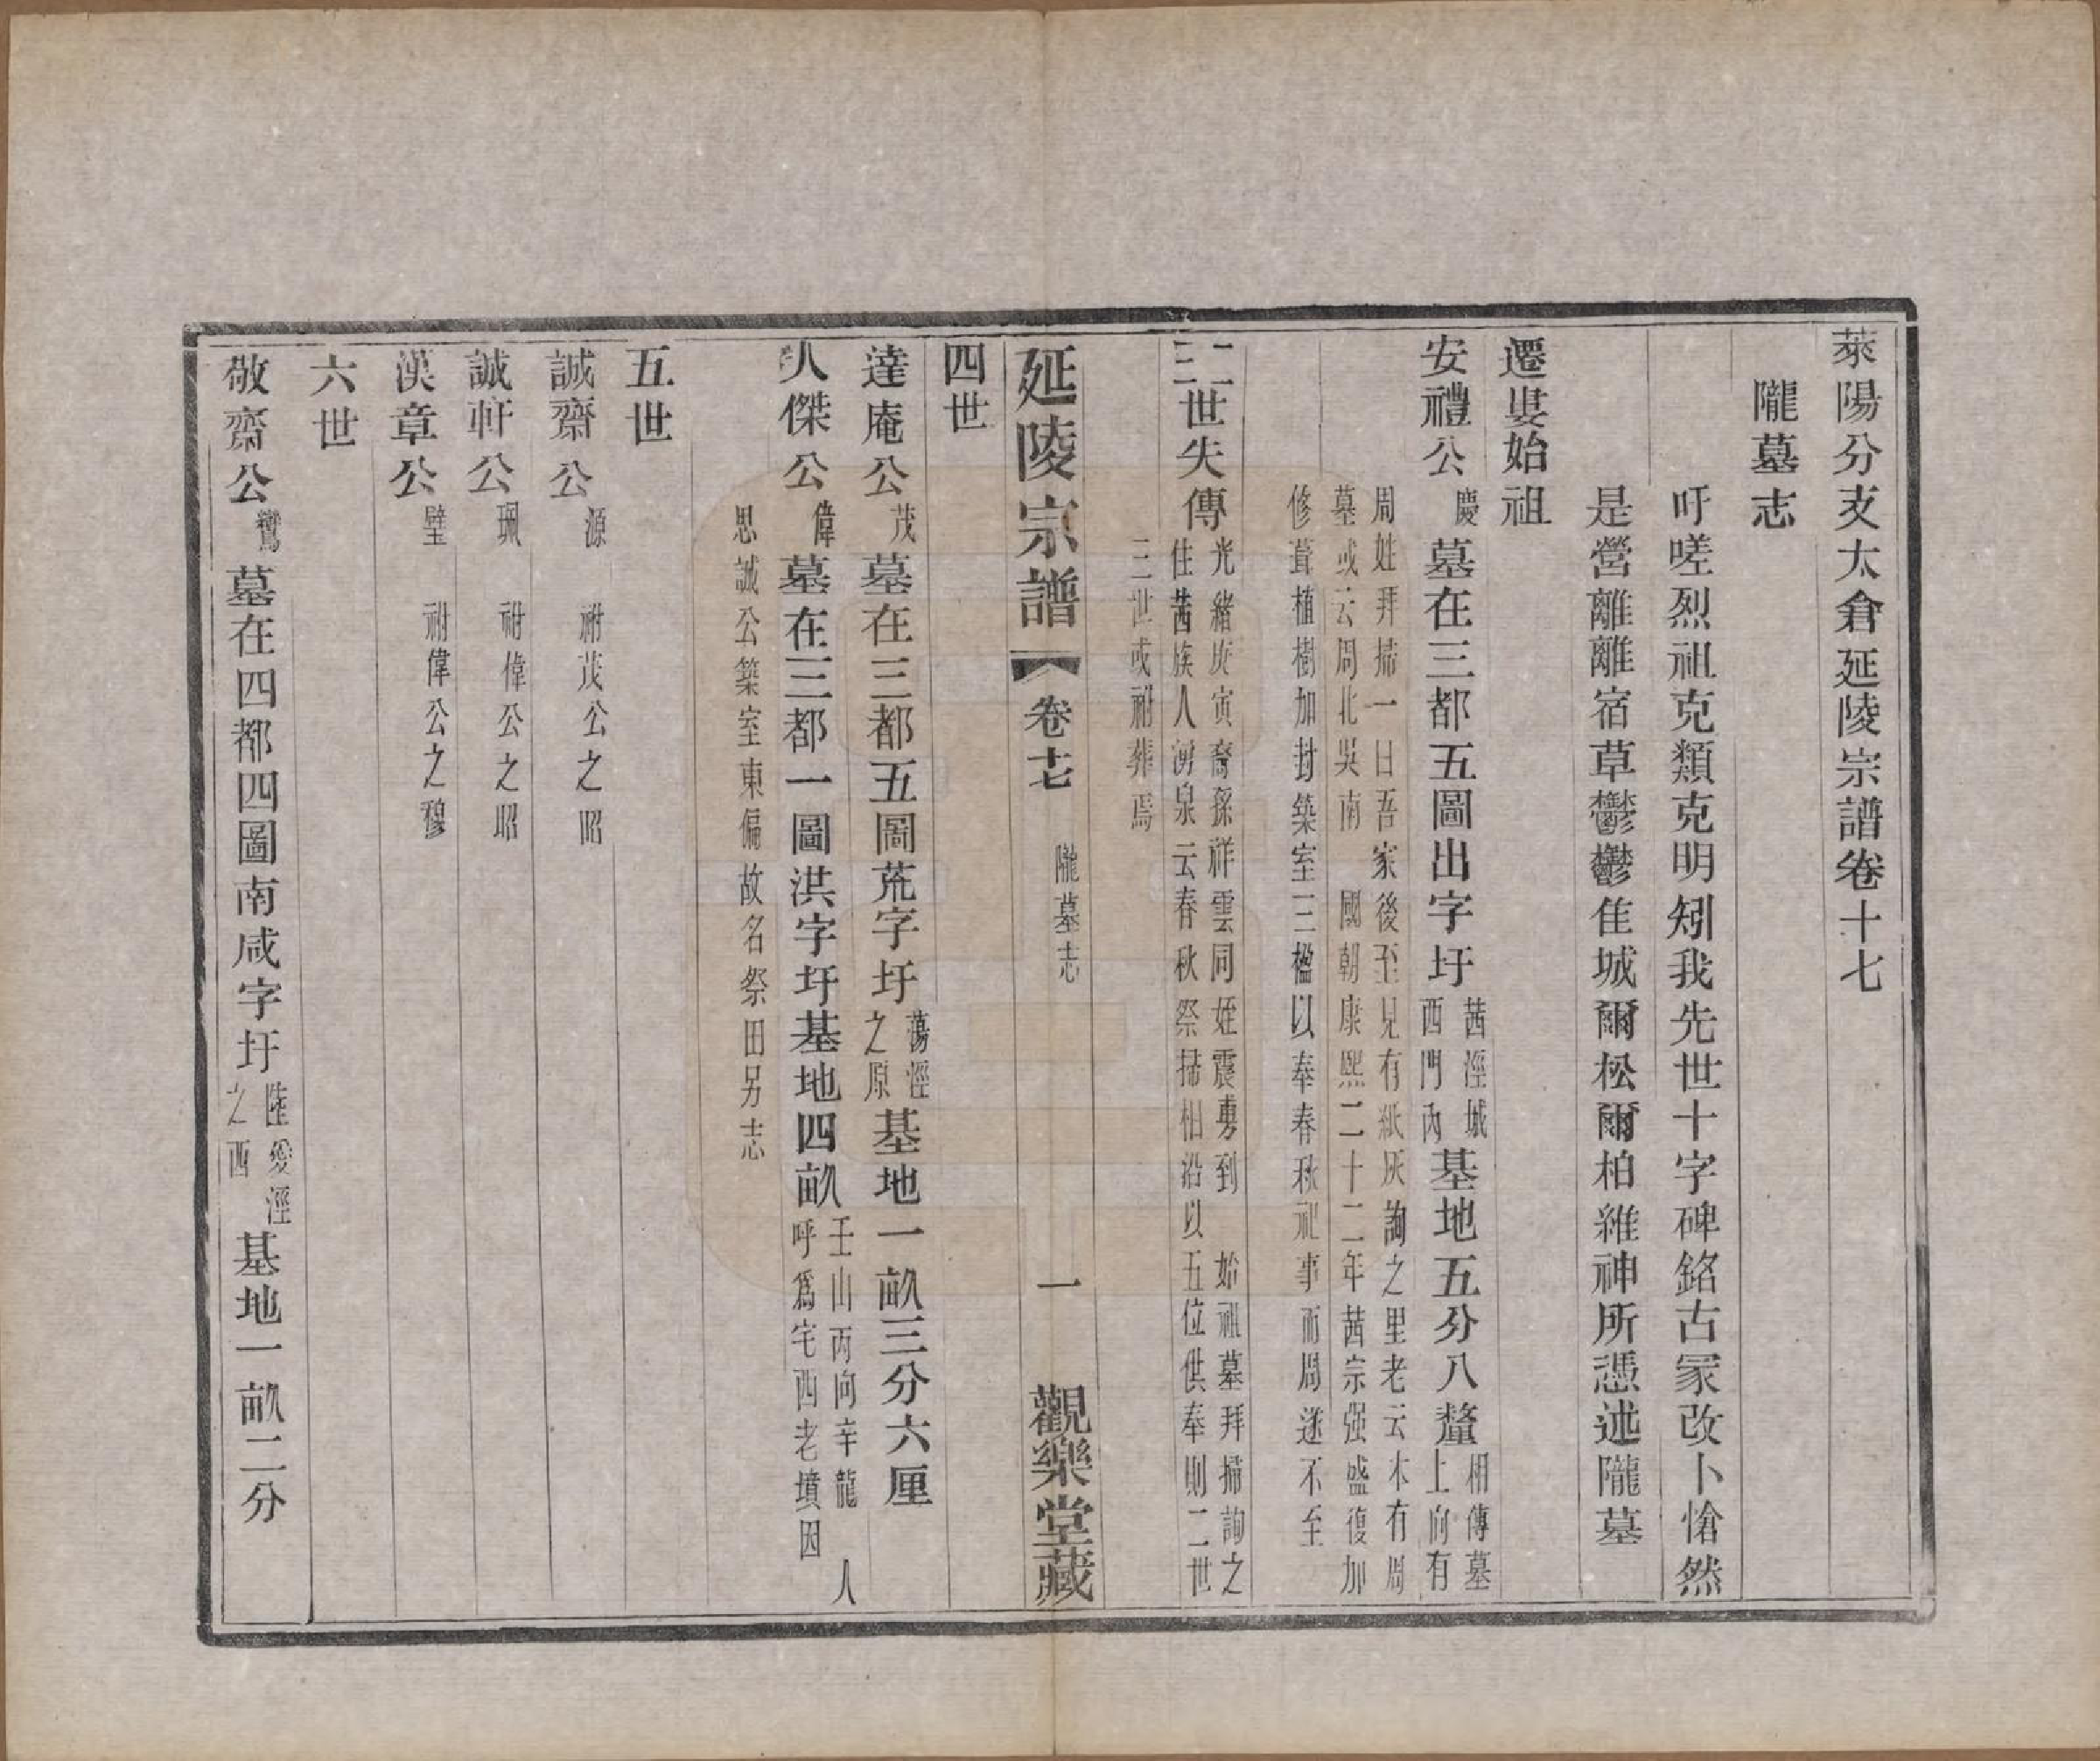 萊陽分支太倉延陵宗譜卷十七
隴墓志
吁嗟烈祖克類克明矧我先世十字碑銘古冢改卜愴然
是營離離宿草鬱鬱佳城爾松爾柏維神所憑述隴墓
遷婁始祖
安禮公慶墓在三都五圖出字圩茜涇城西門內基地五分八釐相傳墓上向有
周姓拜掃一日吾家後至見有紙灰詢之里老云本有周
墓或云周北吳南國朝康熙二十二年茜宗强盛復加
修葺植樹加封築室三楹以奉春秋祀事而周遂不至
二三世失傳光緒庚寅裔孫祥雲同姪震勇到始祖墓拜掃詢之
住茜族人湧泉云春秋祭掃相沿以五位供奉則二世
三世或祔葬焉
延陵宗譜 卷十七 隴墓志 一 觀樂堂藏
四世
達庵公茂墓在三都五圖荒字圩蕩涇之原基地一畝三分六厘
人傑公偉墓在三都一圖洪字圩基地四畝壬山丙向辛龍人呼爲宅西老墳因
思誠公築室東偏故名祭田另志
五世
誠齋公源 祔茂公之昭
誠軒公珮 祔偉公之昭
漢章公璧 祔偉公之穆
六世
敬齋公鸞墓在四都四圖南咸字圩陸婆涇之西基地一畝二分